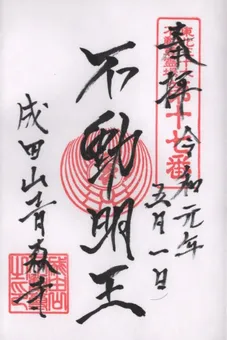 奉拝
令和元年
五月一日
第十七番
不動明王
成田山青森寺